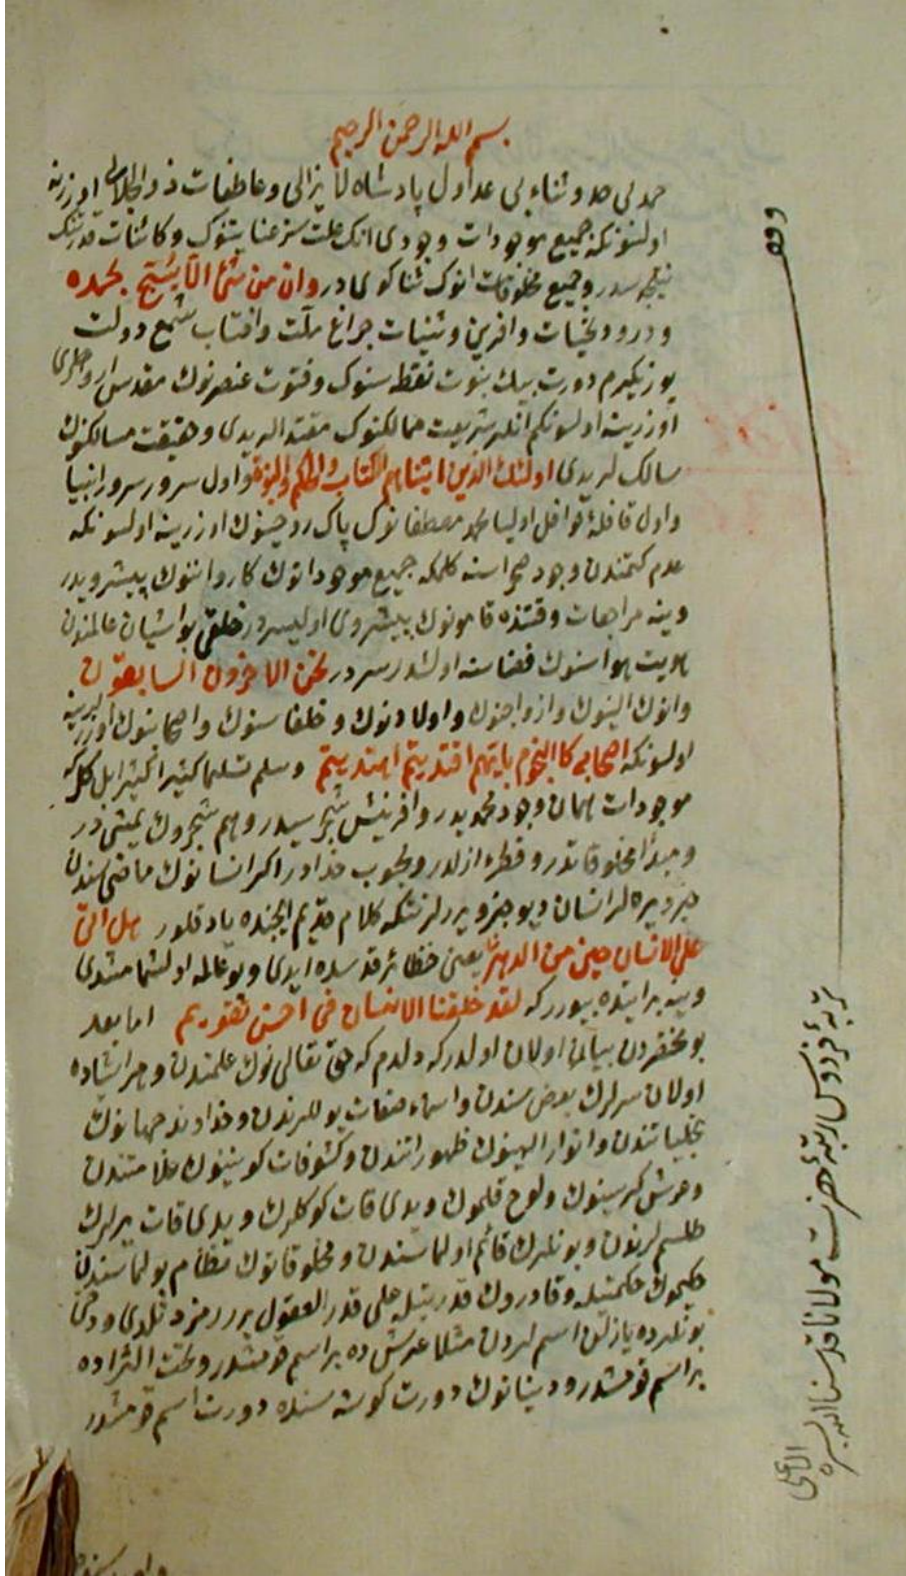 بسم الله الرحمن الرحيم
حمد بی حد و ثناء بی عد اول پادشاه لا يزالی و عاطفات ذو الجلالی اوزرنه
اولسونکه جمیع موجودات وجودی انک علت سز عنایتنوک و کائنات قدرتنک
نتیجه سدر و جمیع مخلوقات انوک ثناکوی در وان من شئ الا يسبح بحمده
و درود و تحیات و افرین و تنیات چراغ ملت و افتاب شمع دولت
یوز یکرم دورت بیک نبوت نقطه سنوک و فتوت عنصرنوک مقدس ارواحلری
اوزرینه اولسونکم انلر شریعت ممالکنوک مقتدالریدی و حقیقت مسالکنوک
سالکلریدی اولئك الذين اتيناهم الكتاب والحكم والنبوة و اول سرور سرور انبیا
و اول قافلهٔ قوافل اولیا محمد مصطفانوک پاک روحینوک اوزرینه اولسونکه
عدم کتمندن وجود صحراسنه کلمکه جمیع موجوداتوک کارواننوک پیشرویدر
وینه مراجعات وقتنده قامونوک پیشروی اولیسردر خلق بو اشیان عالمندن
هویت هواسنوک فضاسنه اولشدرسردر نحن الاخرون السابقون
وانوک الینوک و ازواجنوک و اولادنوک و خلفاسنوک و اصحابنوک اوزرلرینه
اولسونکه اصحابی کالنجوم بايهم اقتديتم اهتديتم وسلم تسليما كثيرا كثيرا بل کل که
موجودات همان وجود محمدیدر و افرینش شجره سیدر و هم شجرونک یمشی در
و مبدأ مخلوقاتدر و فطرهٔ ازلدر و محبوب خدادر اکر انسانوک ماضی سندن
خبر ویره لر انسان دیو خبر ویررلر نتکه کلام قدیم ایچنده یاد قلور هل اتى
على الانسان حين من الدهر یعنی خظائر قدسده ایدی و بو عالمه اولشمامشدی
وینه بر ایتده بیورر که لقد خلقنا الانسان فی احسن تقويم اما بعد
بو مختصردن بیان اولان اولدرکه دلدم که حق تعالی نوک علمندن و هر اشیاده
اولان سرلرک بعضی سندن و اسماء صفات یوللرندن و خداوند جهانوک
تجلیاتندن و انوار الهینوک ظهوراتندن و کشوفات کونینوک علامتندن
و عرش کرسینوک و لوح قلموک و یدی قات کوکلرک و یدی قات یرلرک
طلسملرنون و بونلرک قائم اولماسندن و مخلوقاتوک نظام بولماسندن
حکیموک حکمتیله و قادروک قدرتیله علی قدر العقول برر رمز دنلدی و دخی
بونلرده یازلن اسملردن مثلا عرش ده بر اسم قومشدر و تحت الثراده
بر اسم قومشدر و دنیانوک دورت کوشه سنده دورت اسم قومشدر
وقف
تربهٔ فردوس رتبهٔ حضرت مولانا قدسنا الله بسره
الاعلی